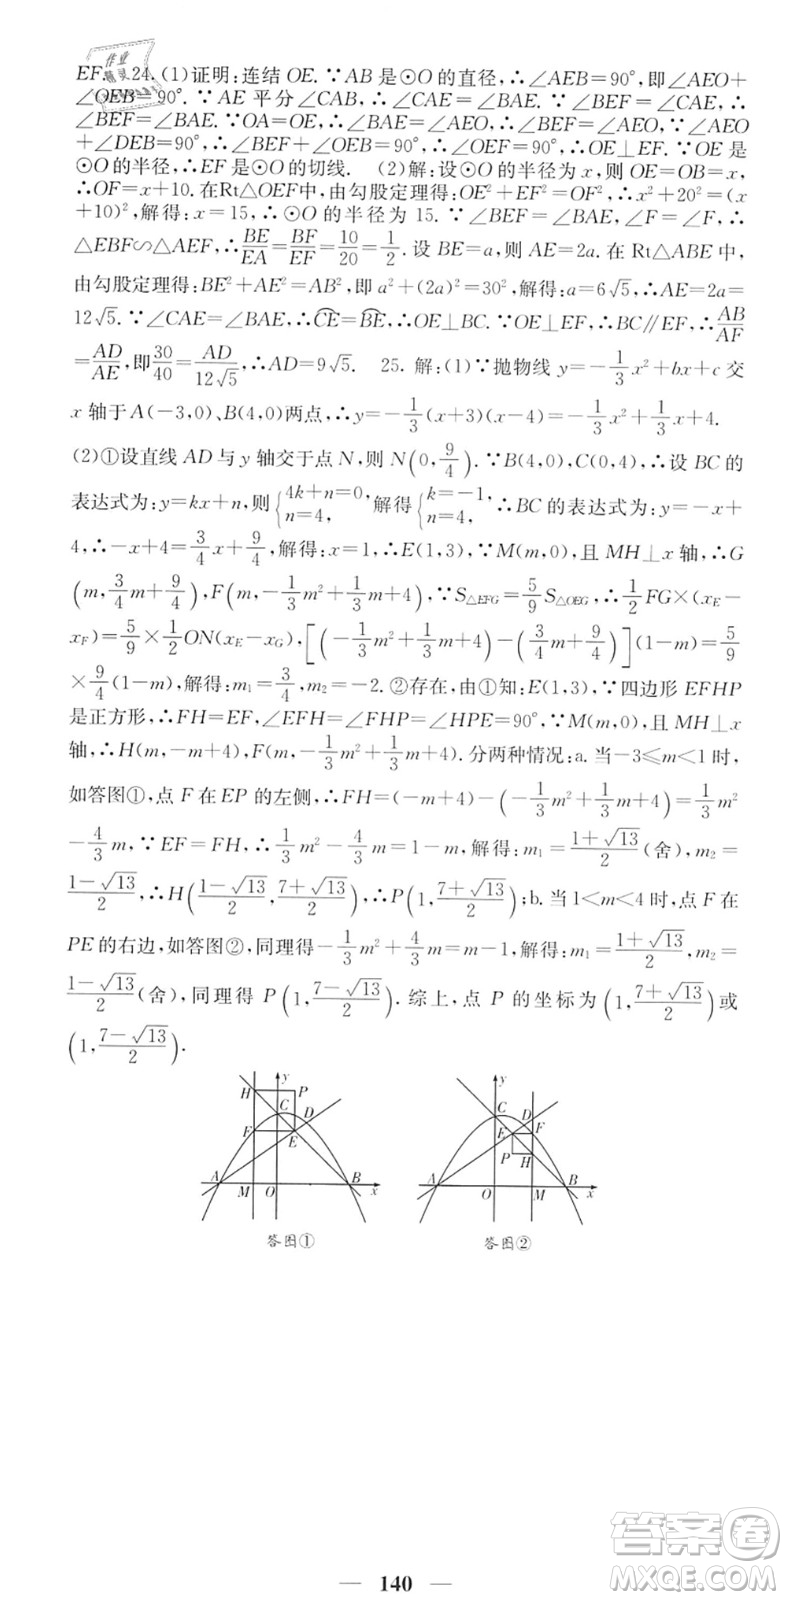 EF. 24. (1)证明:连结 OE. ∵AB 是⊙O 的直径,∴∠AEB=90°,即∠AEO+
∠OEB=90°. ∵AE 平分∠CAB,∴∠CAE=∠BAE. ∵∠BEF=∠CAE,∴
∠BEF=∠BAE. ∵OA=OE,∴∠BAE=∠AEO,∴∠BEF=∠AEO,∵∠AEO
+∠DEB=90°,∴∠BEF+∠OEB=90°,∴∠OEF=90°,∴OE⊥EF. ∵OE 是
⊙O 的半径,∴EF 是⊙O 的切线. (2)解:设⊙O 的半径为 x,则 OE=OB=x,
∴OF=x+10. 在Rt△OEF中,由勾股定理得:OE²+EF²=OF²,∴x²+20²=(x
+10)²,解得:x=15,∴⊙O 的半径为 15. ∵∠BEF=∠BAE,∠F=∠F,∴
△EBF∽△AEF,∴BE/EA=BF/EF=10/20=1/2. 设 BE=a,则 AE=2a. 在 Rt△ABE 中,
由勾股定理得:BE²+AE²=AB²,即 a²+(2a)²=30²,解得:a=6√5,∴AE=2a=
12√5. ∵∠CAE=∠BAE,∴⌒CE=⌒BE,∴OE⊥BC. ∵OE⊥EF,∴BC∥EF,∴AB/AF
=AD/AE,即30/40=AD/12√5,∴AD=9√5. 25. 解:(1)∵抛物线 y=-1/3x²+bx+c 交
x 轴于 A(-3,0)、B(4,0)两点,∴y=-1/3(x+3)(x-4)=-1/3x²+1/3x+4.
(2)①设直线 AD 与 y 轴交于点 N,则 N(0,9/4). ∵B(4,0),C(0,4),∴设 BC 的
表达式为:y=kx+n,则{4k+n=0, n=4, 解得{k=-1, n=4, ∴BC 的表达式为:y=-x+
4,∴-x+4=3/4x+9/4,解得:x=1,∴E(1,3),∵M(m,0),且 MH⊥x 轴,∴G
(m,3/4m+9/4),F(m,-1/3m²+1/3m+4),∵S△EFG=5/9S△OEG,∴1/2FG×(xE-
xF)=5/9×1/2ON(xE-xG),[(-1/3m²+1/3m+4)-(3/4m+9/4)](1-m)=5/9
×9/4(1-m),解得:m₁=3/4,m₂=-2. ②存在,由①知:E(1,3),∵四边形 EFHP
是正方形,∴FH=EF,∠EFH=∠FHP=∠HPE=90°,∵M(m,0),且 MH⊥x
轴,∴H(m,-m+4),F(m,-1/3m²+1/3m+4). 分两种情况:a. 当-3≤m<1 时,
如答图①,点 F 在 EP 的左侧,∴FH=(-m+4)-(-1/3m²+1/3m+4)=1/3m²
-4/3m,∵EF=FH,∴1/3m²-4/3m=1-m,解得:m₁=(1+√13)/2(舍),m₂=
(1-√13)/2,∴H((1-√13)/2,(7+√13)/2),∴P(1,(7+√13)/2);b. 当 1<m<4 时,点 F 在
PE 的右边,如答图②,同理得-1/3m²+4/3m=m-1,解得:m₁=(1+√13)/2,m₂=
(1-√13)/2(舍),同理得 P(1,(7-√13)/2). 综上,点 P 的坐标为(1,(7+√13)/2)或
(1,(7-√13)/2).
y H P C D F E A B M O x
y C D E F P H A B O M x
答图① 答图②
140
答案圈
MXQE.COM